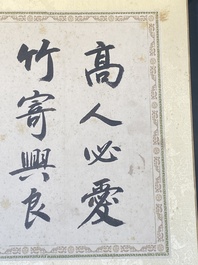 高人必愛
竹寄興良